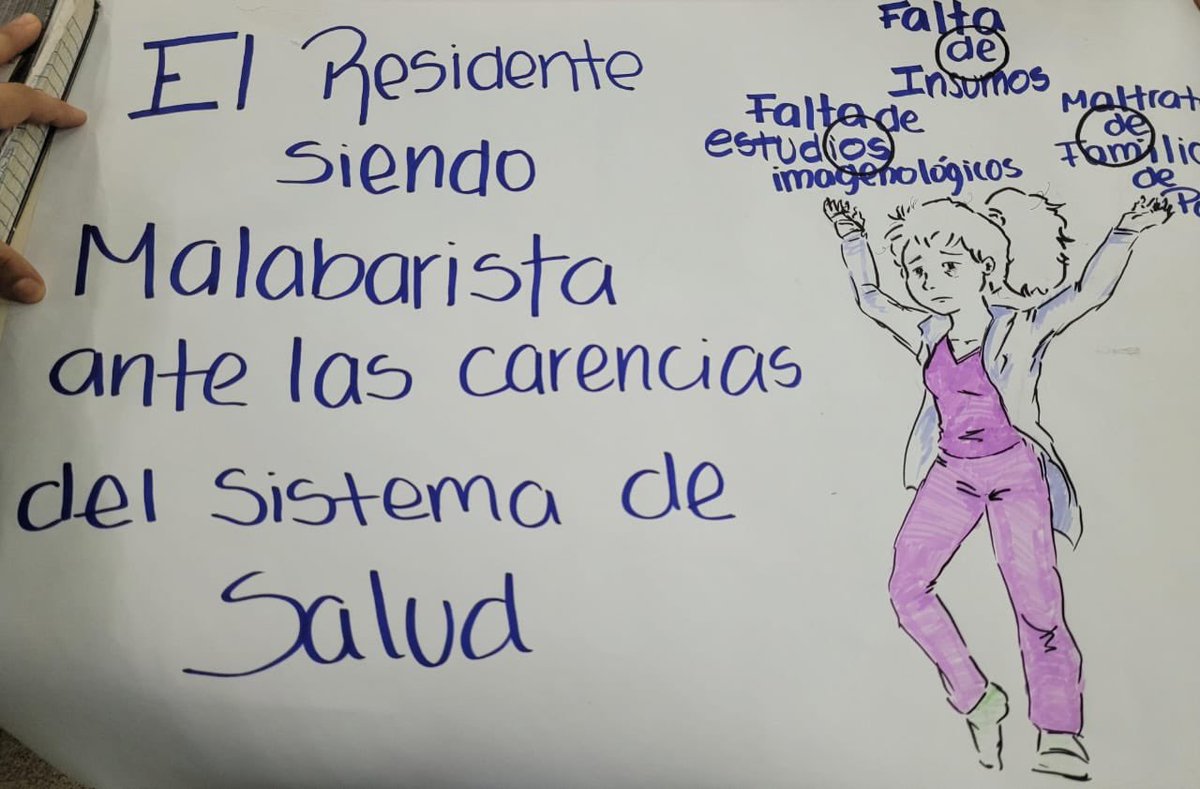 El Residente
siendo
Malabarista
ante las carencias
del sistema de
Salud
Falta
de
Insumos
Falta de
estudios
imagenológicos
Maltrat
de
Familia
de